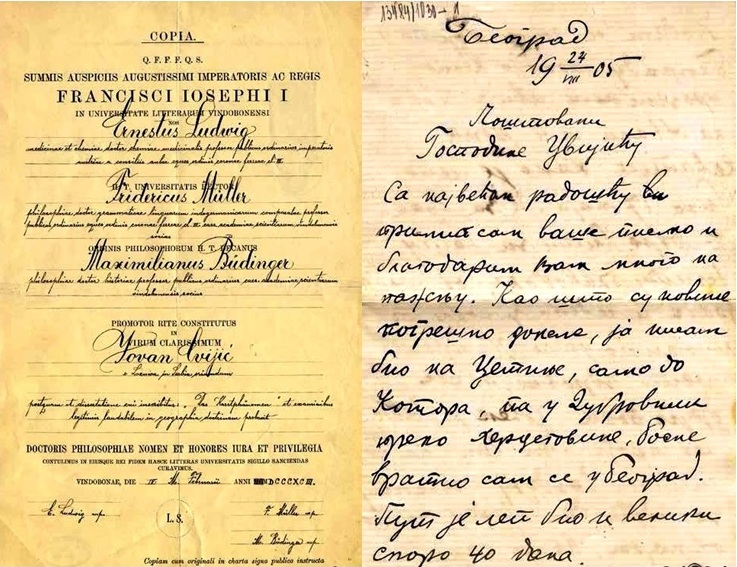 COPIA.
Q. F. F. F. Q. S.
SUMMIS AUSPICIIS AUGUSTISSIMI IMPERATORIS AC REGIS
FRANCISCI IOSEPHI I
IN UNIVERSITATE LITTERARUM VINDOBONENSI
NOS
Ernestus Ludwig
medicinae et chemiae doctor chemiae medicinalis professor publicus ordinarius
H. T. UNIVERSITATIS RECTOR
Fridericus Müller
philosophiae doctor grammaticae linguarum indogermanicarum comparatae professor
publicus ordinarius
socius
ORDINIS PHILOSOPHORUM H. T. DECANUS
Maximilianus Büdinger
philosophiae doctor historiae professor publicus ordinarius caes. academiae scientiarum
vindobonensis socius
PROMOTOR RITE CONSTITUTUS
IN
VIRUM CLARISSIMUM
Jovan Cvijić
e Loznica, in Serbia, oriundum
postquam et dissertatione cui inscribitur: "Das Karstphänomen" et examinibus
legitimis laudabilem in geographia doctrinam probavit
DOCTORIS PHILOSOPHIAE NOMEN ET HONORES IURA ET PRIVILEGIA
CONTULIMUS IN EIUSQUE REI FIDEM HASCE LITTERAS UNIVERSITATIS SIGILLO SANCIENDAS
CURAVIMUS.
VINDOBONAE, DIE M. Februarii ANNI
E. Ludwig mp.
L. S.
F. Müller mp
M. Büdinger mp
Copiam cum originali in charta signo publico instructa
Београд
19 24/VIII 05
Поштовани
Господине Цвијићу
Са највећом радошћу
примио сам ваше писмо и
благодарим вам много на
пажњу. Као што су новине
погрешно донеле, ја нисам
био на Цетиње, само до
Котора, па у Дубровник
преко Херцеговине, Босне
вратио сам се у Београд.
Пут је леп био и велики
скоро 40 дана.